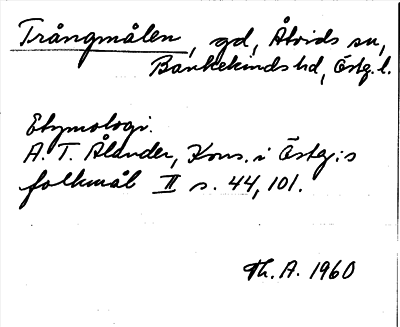 Trångmålen, gd, Åtvids sn,
Bankekinds hd, Östg. l.
Etymologi.
A. T. Ålander, Kons. i Östg:s
folkmål II s. 44, 101.
Th. A. 1960